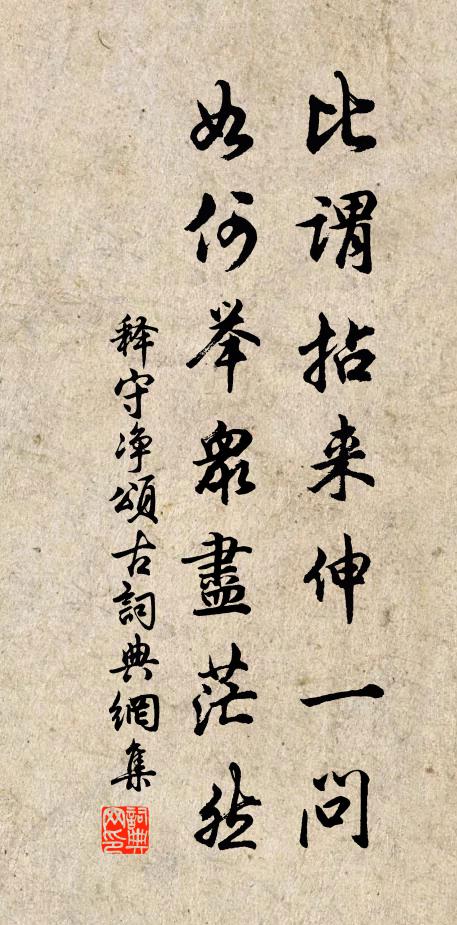 比谓拈来伸一问
如何举众尽茫然
释守净颂古词典网集
词典网印